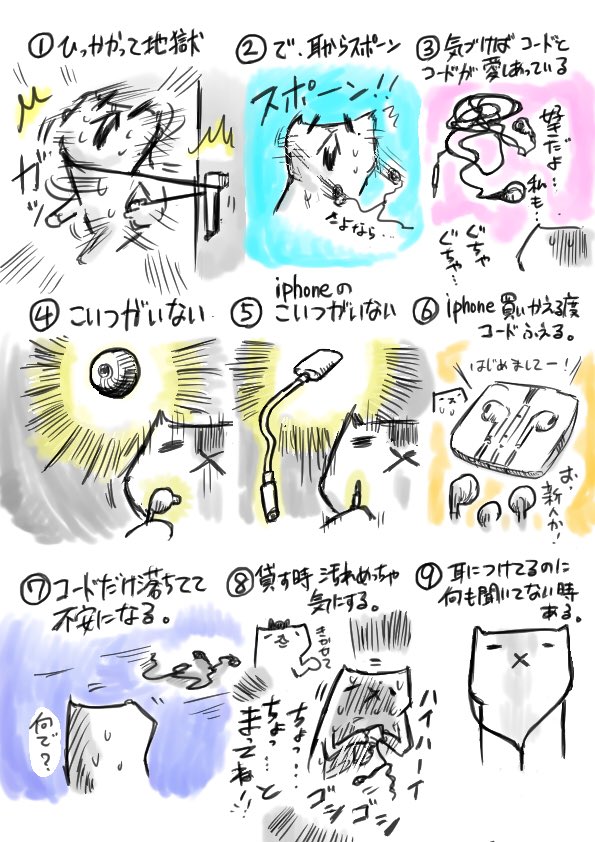 ①ひっかかって地獄
ガッ
②で、耳からスポーン
スポーン!!
さよなら…
③気づけばコードと
コードが愛しあっている
好きだよ…
私も…
ぐちゃ
ぐちゃ…
④こいつがいない
⑤iphoneの
こいつがいない
⑥iphone買いかえる度
コードふえる。
はじめましてー!
お、
新人か!
⑦コードだけ落ちてて
不安になる。
何で?
⑧貸す時汚れめっちゃ
気にする。
きかせて
ハイハーイ
ちょっ…
ちょっ…と
まってね!!
ゴシ
ゴシ
⑨耳につけてるのに
何も聞いてない時
ある。